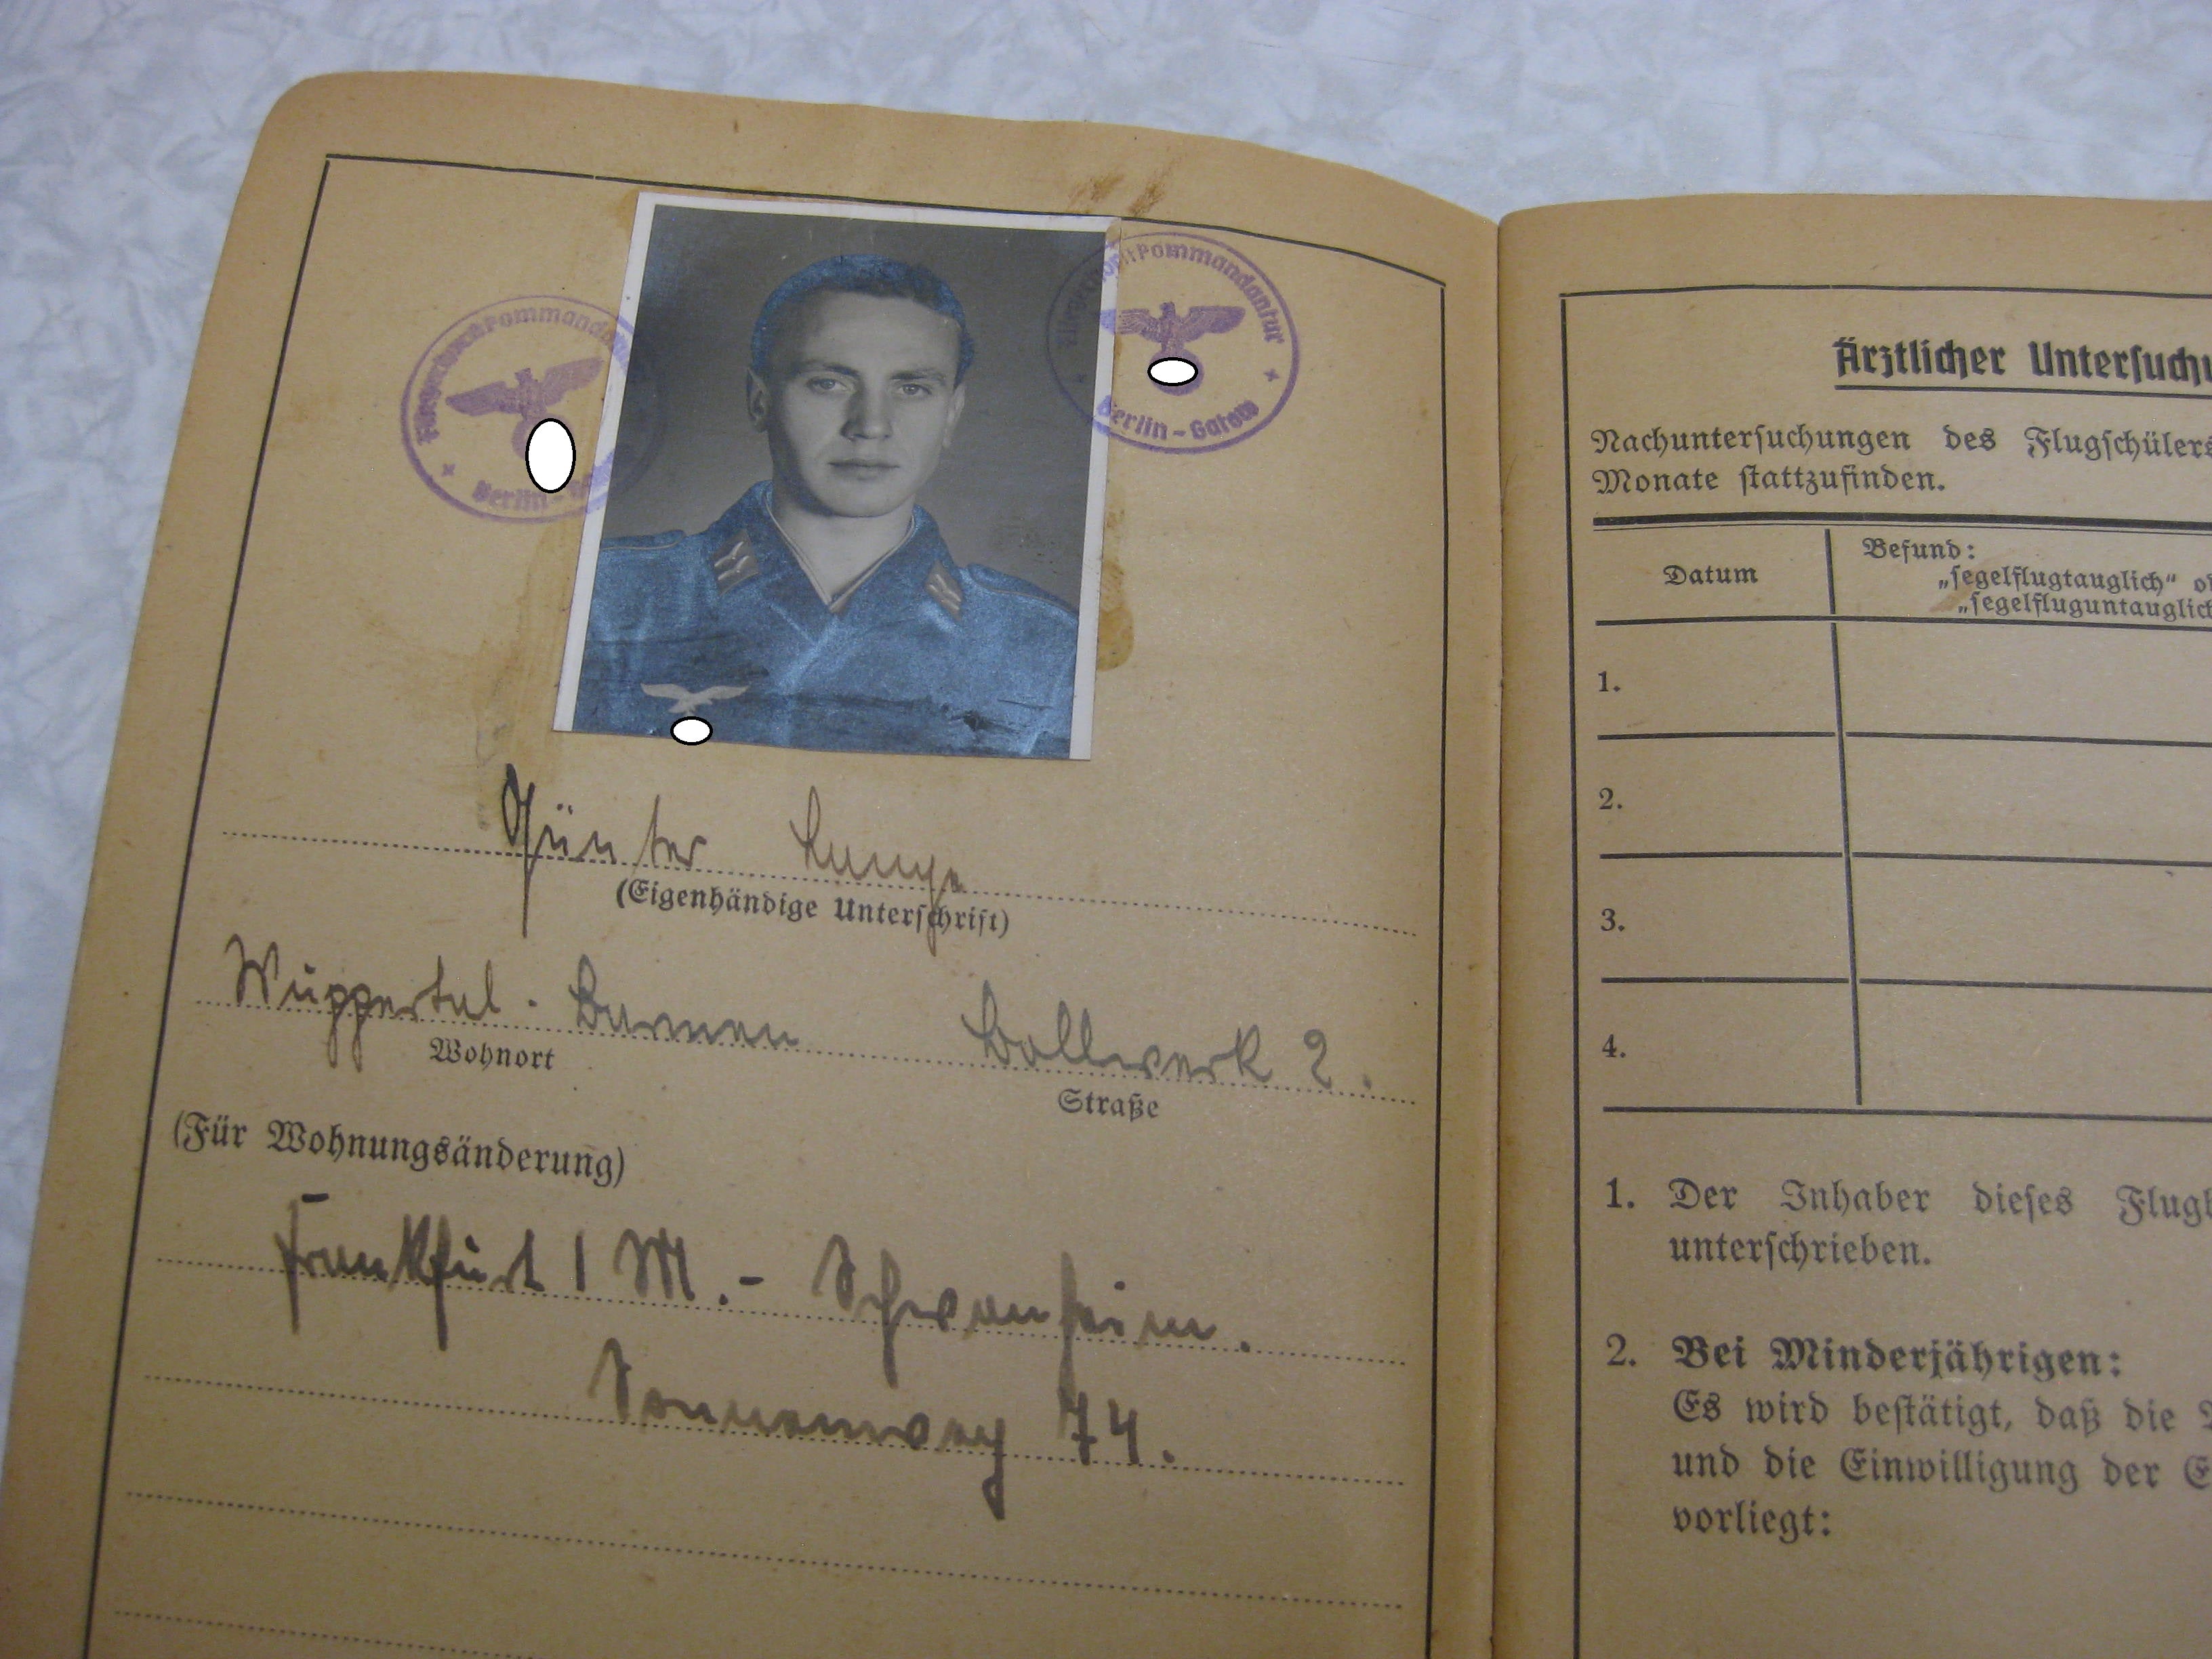 Fliegerhorstkommandantur
Berlin-
Fliegerhorstkommandantur
Berlin-Gatow
Günter Lunge
(Eigenhändige Unterschrift)
Wuppertal-Barmen Bollwerk 2.
Wohnort Straße
(Für Wohnungsänderung)
Frankfurt / M.- Schwanheim.
Sonnenweg 74.
Ärztlicher Untersuchu
Nachuntersuchungen des Flugschülers
Monate stattzufinden.
Datum
Befund:
„segelflugtauglich“
„segelfluguntauglich
1.
2.
3.
4.
1. Der Inhaber dieses Flug
unterschrieben.
2. Bei Minderjährigen:
Es wird bestätigt, daß die
und die Einwilligung der E
vorliegt: